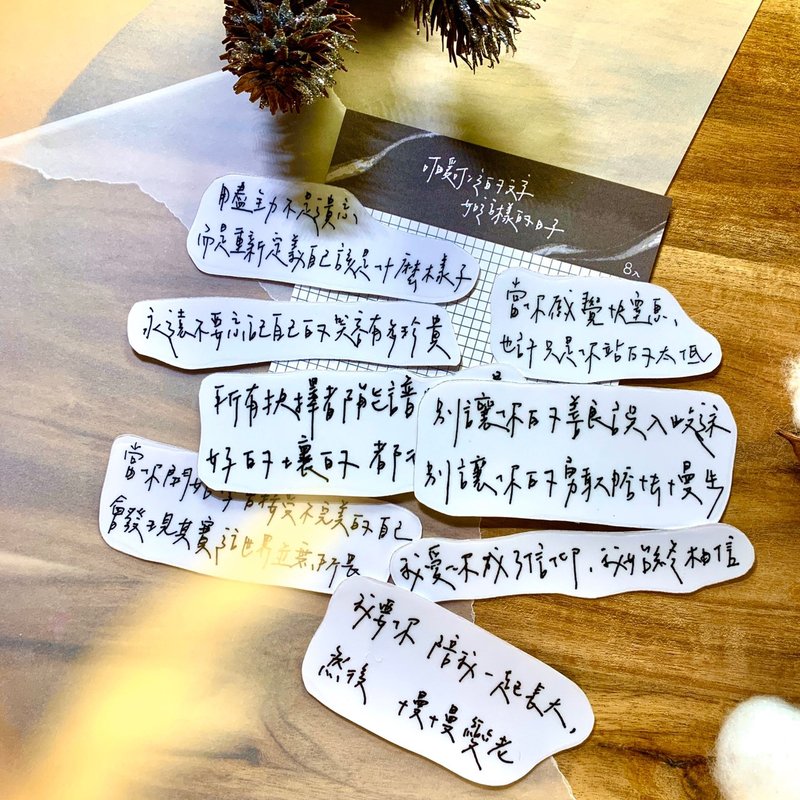 曖曖的文字
如這樣的日子
8入
用盡全力不是遺忘,
而是重新定義自己該是什麼樣子
永遠不要忘記自己的哭容有多珍貴
當你感覺快窒息,
也許只是你站的太低
所有抉擇都隨
好的壞的 都
別讓你的善良誤入歧途
別讓你的勇敢膽怯慢生
當你開始 接受不完美的自己
會發現其實這世界並無所畏
我愛你成了信仰,我始終相信
我要你 陪我一起長大,
然後 慢慢變老